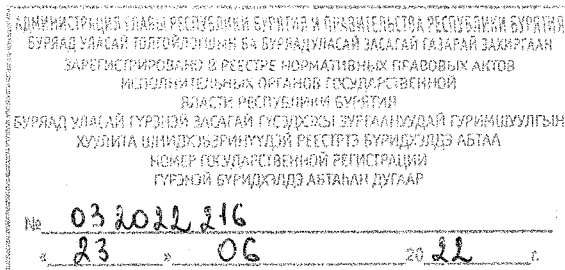 АДМИНИСТРАЦИЯ ГЛАВЫ РЕСПУБЛИКИ БУРЯТИЯ И ПРАВИТЕЛЬСТВА РЕСПУБЛИКИ БУРЯТИЯ
БУРЯАД УЛАСАЙ ТОЛГОЙЛЭГШЫН БА БУРЯАД УЛАСАЙ ЗАСАГАЙ ГАЗАРАЙ ЗАХИРГААН
ЗАРЕГИСТРИРОВАНО В РЕЕСТРЕ НОРМАТИВНЫХ ПРАВОВЫХ АКТОВ
ИСПОЛНИТЕЛЬНЫХ ОРГАНОВ ГОСУДАРСТВЕННОЙ
ВЛАСТИ РЕСПУБЛИКИ БУРЯТИЯ
БУРЯАД УЛАСАЙ ГҮРЭНЭЙ ЗАСАГАЙ ГҮЙСЭДХЭХЫ ЗУРГААНУУДАЙ ГУРИМШУУЛГЫН
ХУУЛИТА ШИИДХЭБЭРИНҮҮДЭЙ РЕЕСТРТЭ БҮРИДХЭЛДЭ АБТАА
НОМЕР ГОСУДАРСТВЕННОЙ РЕГИСТРАЦИИ
ГҮРЭНЭЙ БҮРИДХЭЛДЭ АБТАҺАН ДУГААР
№ 032022216
« 23 » 06 20 22 г.